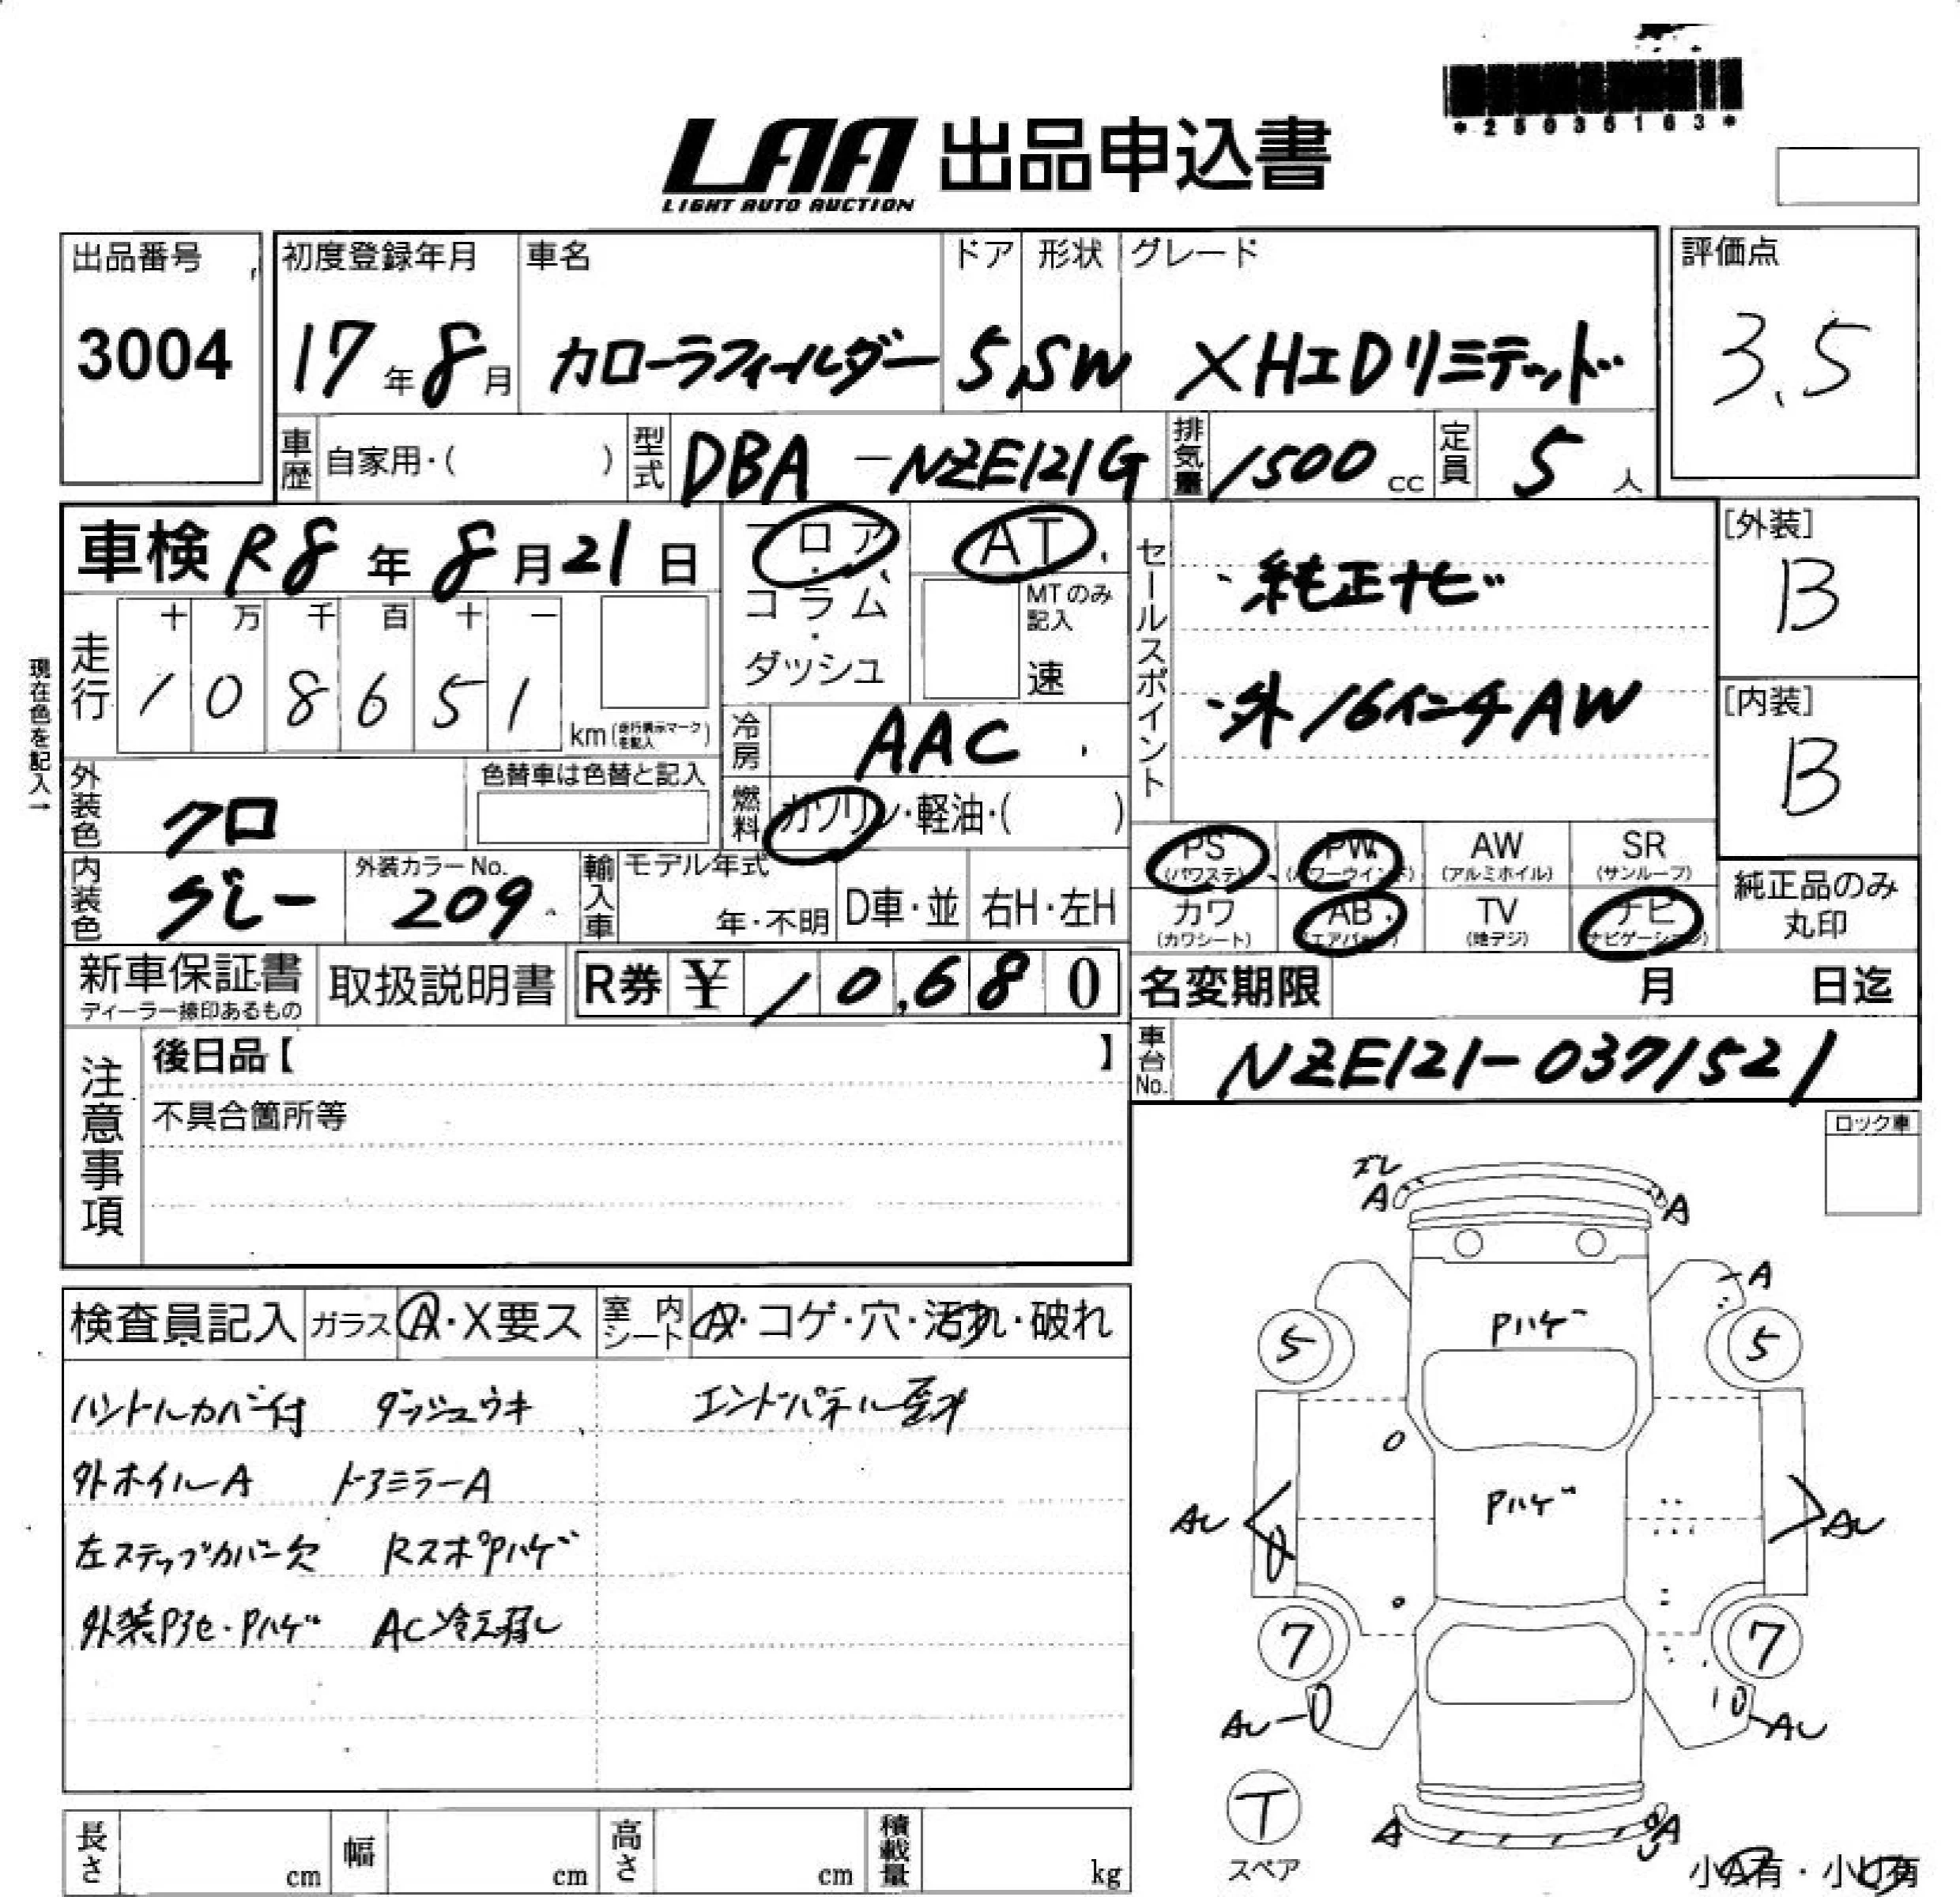 *25035163*
LAA 出品申込書
LIGHT AUTO AUCTION
出品番号
3004
初度登録年月
17年8月
車名
カローラフィールダー
ドア
5
形状
SW
グレード
XHIDリミテッド
評価点
3.5
車歴 自家用・( )
型式 DBA-NZE121G
排気量 1500 cc
定員 5 人
車検 R8年8月21日
フロア・コラム・ダッシュ
AT
MTのみ記入
速
セールスポイント
・純正ナビ
・外16インチAW
[外装]
B
[内装]
B
現在色を記入→
走行
十 万 千 百 十 一
1 0 8 6 5 1
km(走行表示マークを記入)
冷房 AAC
燃料 ガソリン・軽油・( )
外装色 クロ
色替車は色替と記入
内装色 グレー
外装カラーNo.
209
輸入車
モデル年式
年・不明
D車・並
右H・左H
PS (パワステ)
PW (パワーウインド)
AW (アルミホイル)
SR (サンルーフ)
カワ (カワシート)
AB (エアバッグ)
TV (地デジ)
ナビ (ナビゲーション)
純正品のみ
丸印
新車保証書
ディーラー捺印あるもの
取扱説明書
R券 ¥ 10,680
名変期限 月 日迄
注意事項
後日品【 】
不具合箇所等
車台No. NZE121-0371521
ロック車
検査員記入
ガラス A・X要ス
室内シート A・コゲ・穴・汚れ・破れ
ハンドルカバー付 ダッシュウキ エンドパネル歪み
外ホイルA ドアミラーA
左ステップカバー欠 RスポPハゲ
外装Pアセ・Pハゲ AC冷え弱し
ズレ
A
A
A
Pハゲ
5
5
Pハゲ
AU
AU
7
7
AU
AU
T
スペア
A
A
小A有・小U有
長さ cm
幅 cm
高さ cm
積載量 kg